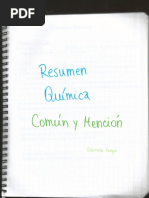 Resumen
Química
Común y Mención